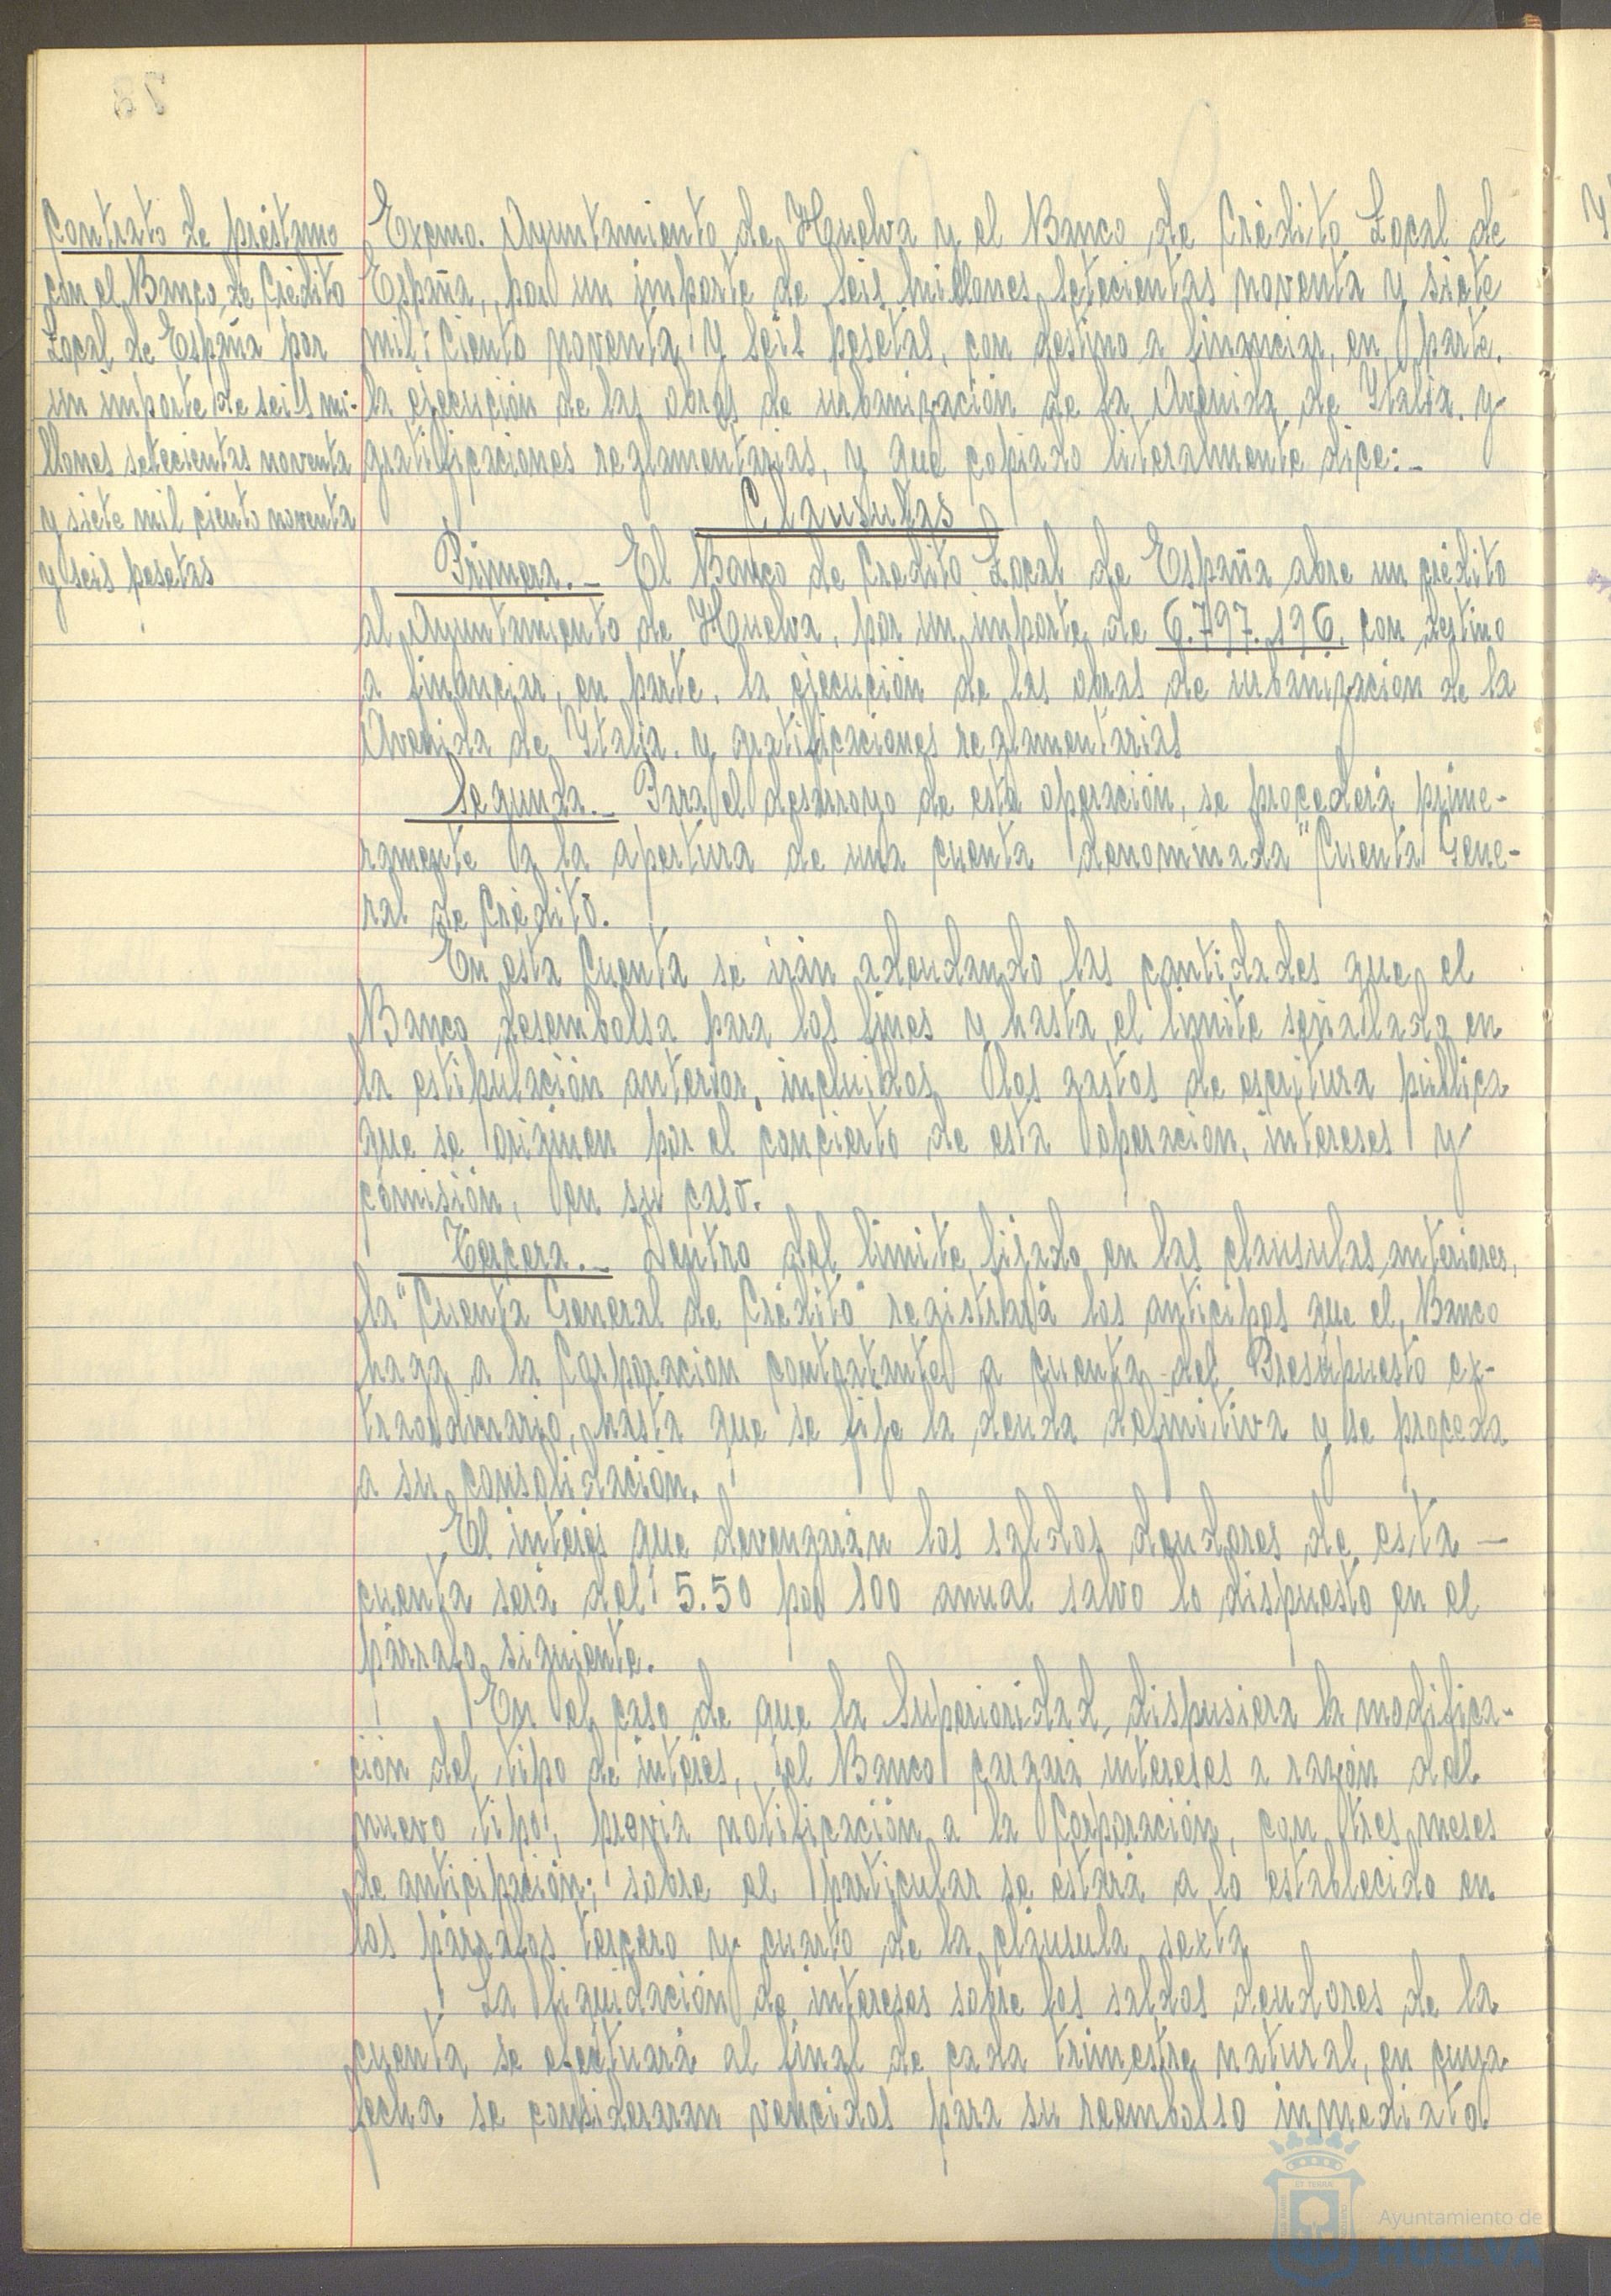 Contrato de préstamo
con el Banco de Crédito
Local de España por
un importe de seis mi-
llones setecientas noventa
y siete mil ciento noventa
y seis pesetas
Excmo. Ayuntamiento de Huelva y el Banco de Crédito Local de
España, por un importe de seis millones setecientas noventa y siete
mil ciento noventa y seis pesetas, con destino a financiar, en parte,
la ejecución de las obras de urbanización de la Avenida de Italia y
gratificaciones reglamentarias, y que copiado literalmente dice:-
Clausulas
Primera.- El Banco de Crédito Local de España abre un crédito
al Ayuntamiento de Huelva, por un importe de 6.797.196, con destino
a financiar, en parte, la ejecución de las obras de urbanización de la
Avenida de Italia. y gratificaciones reglamentarias
Segunda.- Para el desarroyo de esta operación, se procederá prime-
ramente a la apertura de una cuenta denominada "Cuenta Gene-
ral de Crédito.
En esta Cuenta se irán adeudando las cantidades que el
Banco desembolsa para los fines y hasta el limite señalado en
la estipulación anterior, incluidos los gastos de escritura pública
que se originen por el concierto de esta operación, intereses y
comisión, en su caso.
Tercera.- Dentro del límite fijado en las clausulas anteriores,
la "Cuenta General de Crédito" registrará los anticipos que el Banco
haga a la Corporación contratante a cuenta del Presupuesto ex-
traordinario, hasta que se fije la deuda definitiva y se proceda
a su consolidación.
El interés que devengarán los saldos deudores de esta -
cuenta será del 5.50 por 100 anual salvo lo dispuesto en el
párrafo siguiente.
En el caso de que la Superioridad, dispusiera la modifica-
ción del tipo de interés, el Banco cargará intereses a razón del
nuevo tipo, previa notificación a la Corporación, con tres meses
de anticipación; sobre el particular se estará a lo establecido en
los párrafos tercero y cuarto de la cláusula sexta
La liquidación de intereses sobre los saldos deudores de la
cuenta se efectuará al final de cada trimestre natural, en cuya
fecha se considerarán vencidos para su reembolso inmediato
Ayuntamiento de
HUELVA